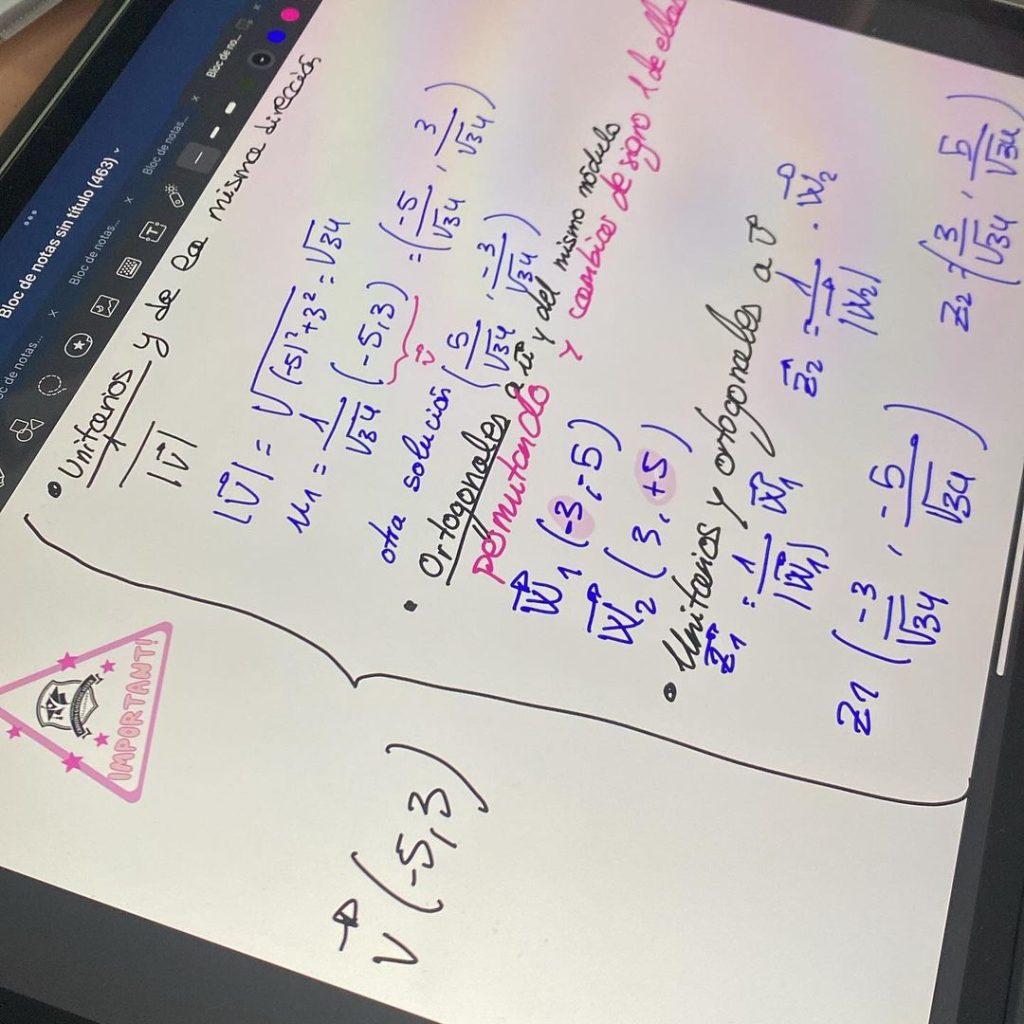 Bloc de notas sin título (463)
Bloc de no...
Bloc de notas...
Bloc de notas...
IMPORTANT!
v (-5, 3)
• Unitarios y de la misma dirección
1
|v|
|v| = √(-5)²+3² = √34
u1 = 1/√34 (-5, 3) = (-5/√34, 3/√34)
v
otra solución (5/√34, -3/√34)
• Ortogonales a u y del mismo módulo
permutando y cambios de signo 1 de ellos
W1 (-3, -5)
W2 (3, +5)
• Unitarios y ortogonales a v
Z1 = 1/|W1| W1
Z2 = 1/|W2| · W2
Z1 (-3/√34, -5/√34)
Z2 = (3/√34, 5/√34)